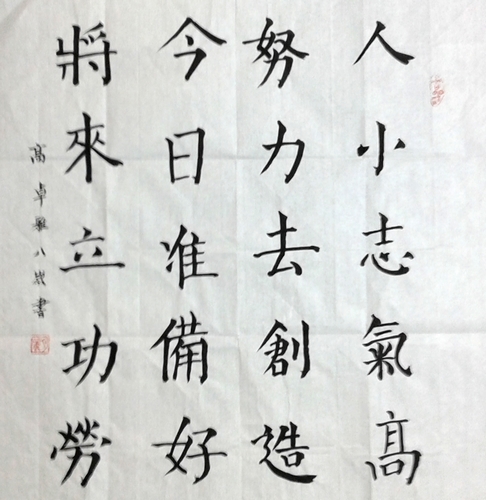 人小志氣高
努力去創造
今日准備好
將來立功勞
高卓雅八歲書